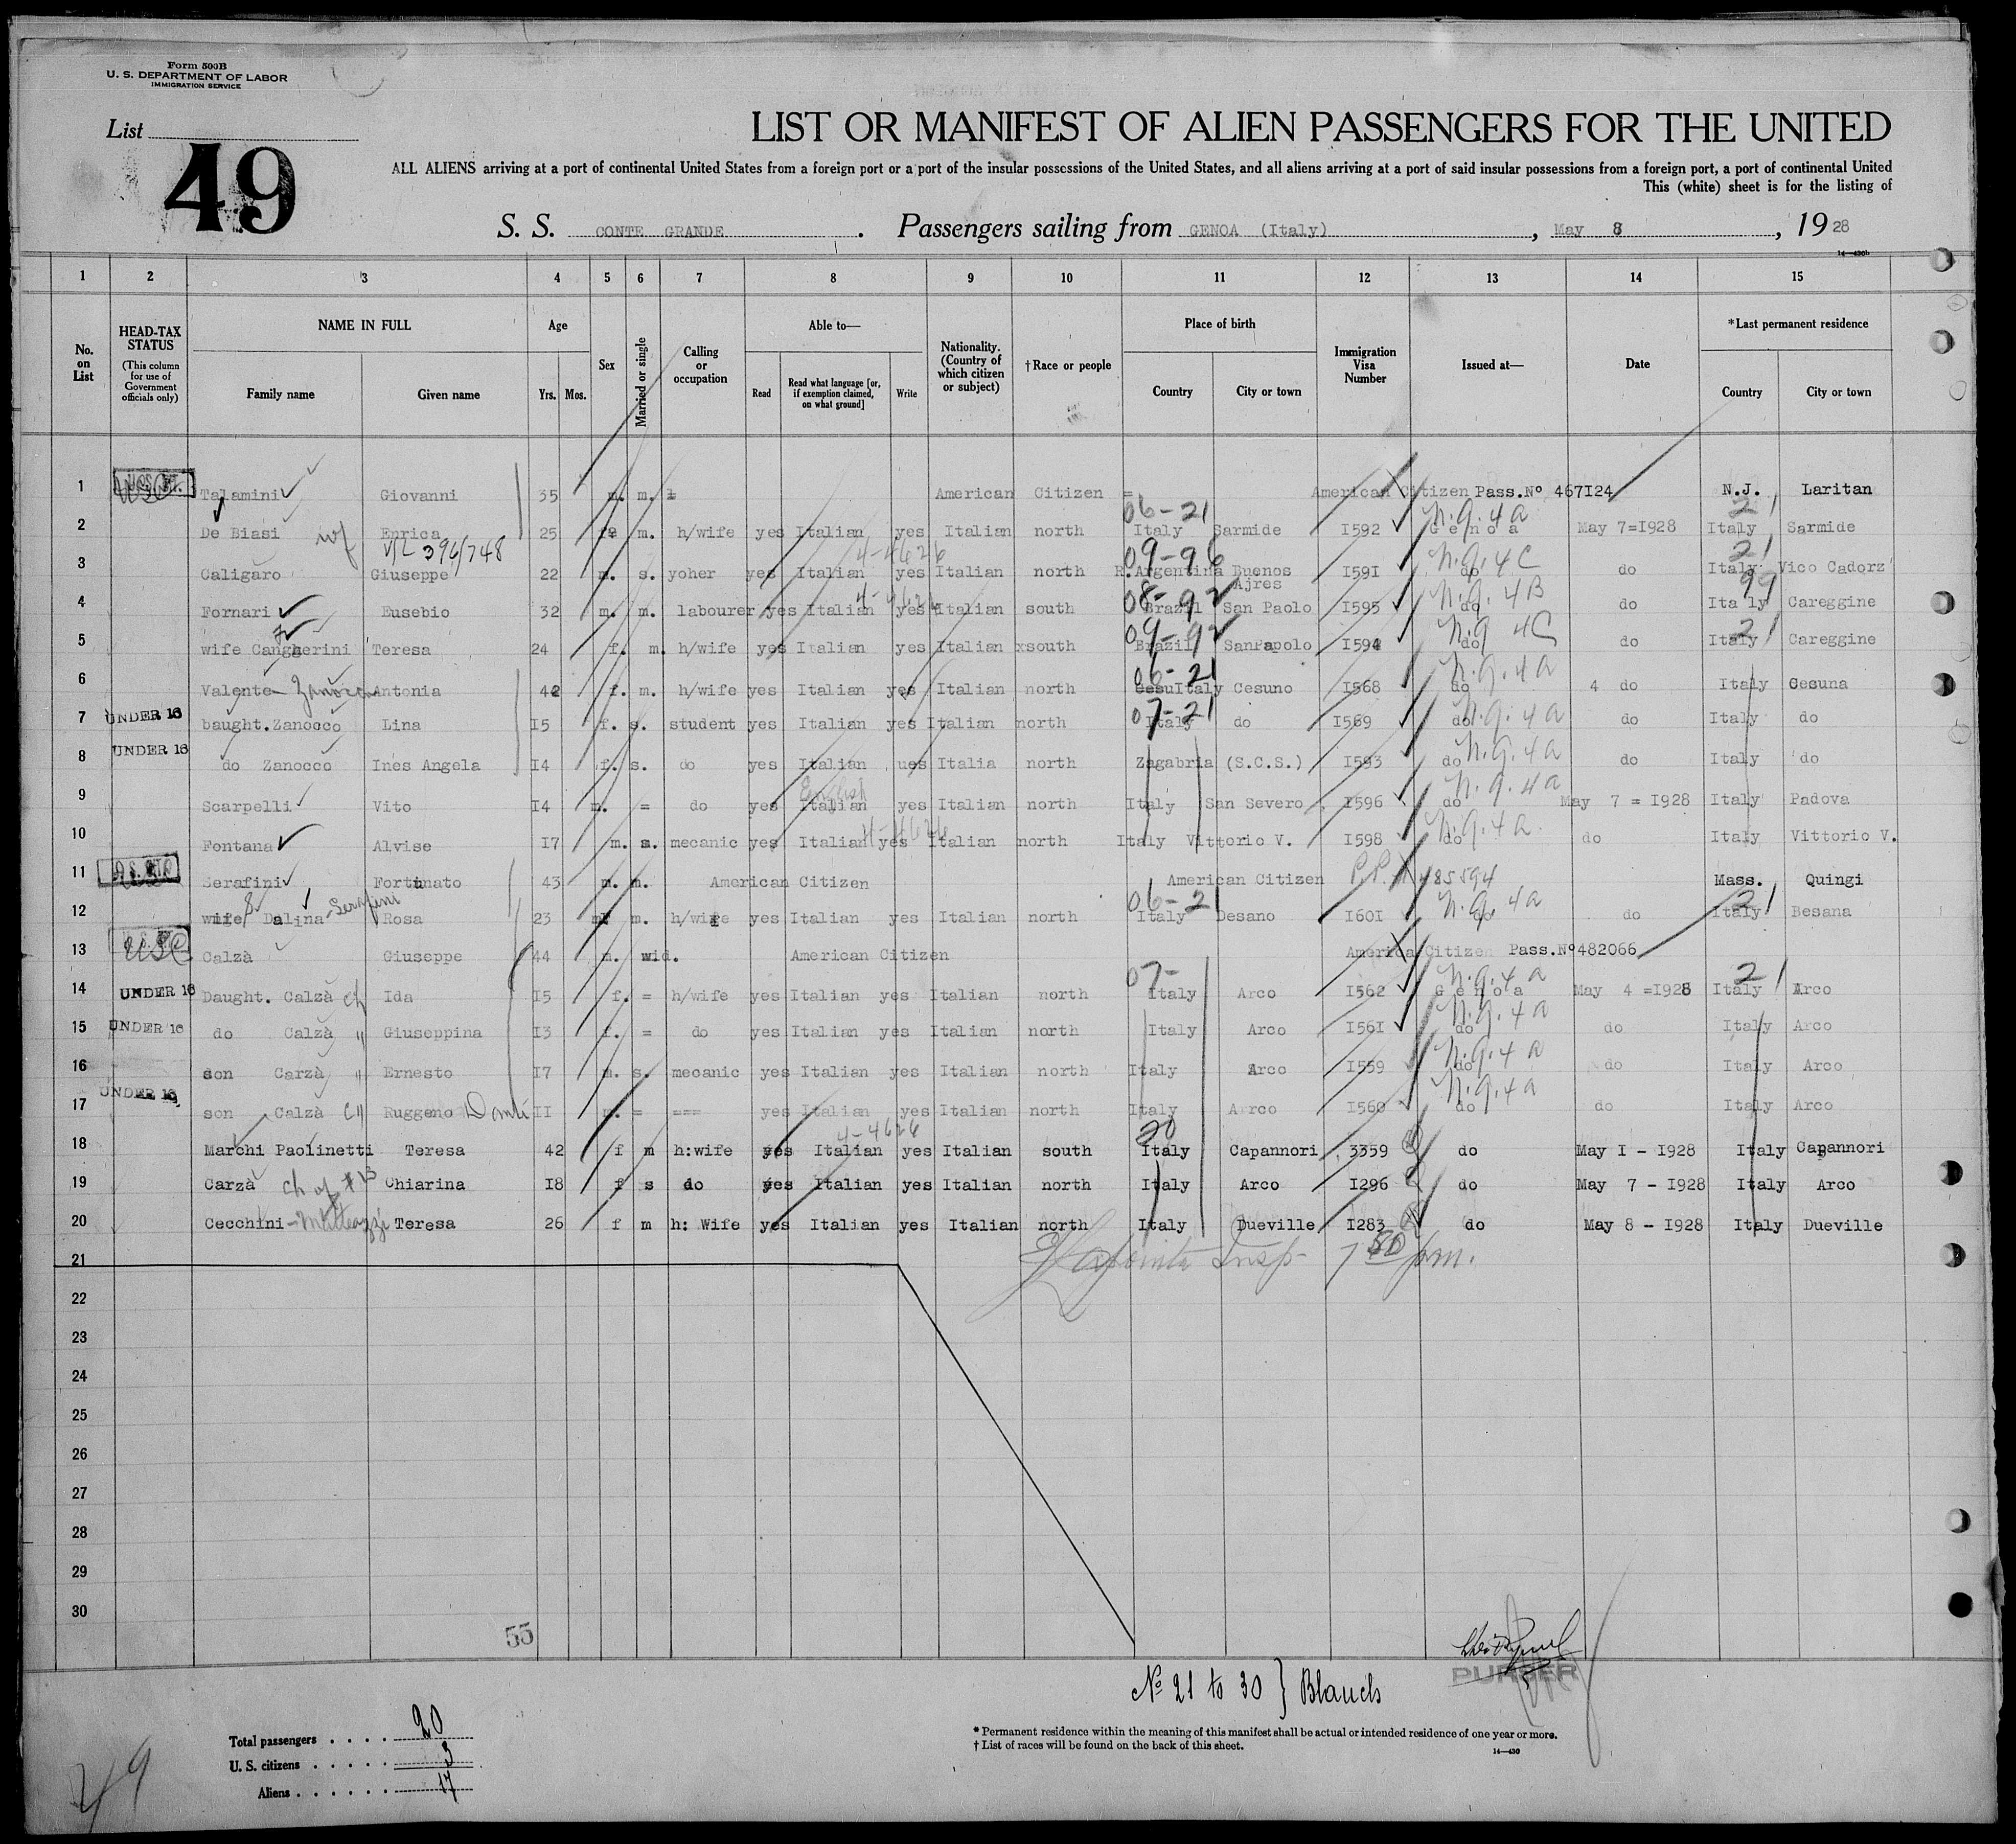 Form 500B
U. S. DEPARTMENT OF LABOR
IMMIGRATION SERVICE
List
49
LIST OR MANIFEST OF ALIEN PASSENGERS FOR THE UNITED
ALL ALIENS arriving at a port of continental United States from a foreign port or a port of the insular possessions of the United States, and all aliens arriving at a port of said insular possessions from a foreign port, a port of continental United
This (white) sheet is for the listing of
S. S. CONTE GRANDE. Passengers sailing from GENOA (Italy), May 8, 1928
14—430b
1 2 3 4 5 6 7 8 9 10 11 12 13 14 15
No. on List
HEAD-TAX STATUS (This column for use of Government officials only)
NAME IN FULL
Family name Given name
Age
Yrs. Mos.
Sex
Married or single
Calling or occupation
Able to—
Read Read what language [or, if exemption claimed, on what ground] Write
Nationality. (Country of which citizen or subject)
†Race or people
Place of birth
Country City or town
Immigration Visa Number
Issued at—
Date
*Last permanent residence
Country City or town
1 USC Talamini Giovanni 35 m. m. American Citizen = American Citizen Pass.Nº 467I24 N.J. Laritan
06-21 N.Q.4a 21
2 De Biasi wf Enrica 25 m. h/wife yes Italian yes Italian north Italy Sarmide I592 Genoa May 7=I928 Italy Sarmide
4-4626 09-96 N.Q.4C 21
3 Caligaro Giuseppe 22 m. s. yoher yes Italian yes Italian north R.Argentina Buenos Ajres I59I do do Italy Vico Cadorz
4-4626 08-92 N.Q. 4B 99
4 Fornari Eusebio 32 m. m. labourer yes Italian yes Italian south Brazil San Paolo I595 do do Italy Careggine
09-92 N.Q 4C 21
5 wife Cangherini Teresa 24 f. m. h/wife yes Italian yes Italian xsouth Brazil SanPapolo I594 do do Italy Careggine
06-21 N.Q.4a
6 Valente Zanocco Antonia 42 f. m. h/wife yes Italian yes Italian north Italy Cesuno I568 do 4 do Italy Cesuna
07-21 N.Q.4a
7 UNDER 16 baught.Zanocco Lina I5 f. s. student yes Italian yes Italian north Italy do I569 do do Italy do
N.Q.4a
8 UNDER 16 do Zanocco Ines Angela I4 f. s. do yes Italian ues Italia north Zagabria (S.C.S.) I593 do do Italy do
English N.Q.4a
9 Scarpelli Vito I4 m. = do yes Italian yes Italian north Italy San Severo I596 do May 7 = I928 Italy Padova
4-4626 N.Q.4a
10 Fontana Alvise I7 m. s. mecanic yes Italian yes Italian north Italy Vittorio V. I598 do do Italy Vittorio V.
11 Serafini Fortunato 43 m. m. American Citizen American Citizen P.P. 485594 Mass. Quingi
06-21 N.Q.4a 21
12 wife Dalina-Serafini Rosa 23 m. h/wife yes Italian yes Italian north Italy Desano I60I do do Italy Besana
13 USC Calzà Giuseppe 44 m. wid. American Citizen America Citizen Pass.Nº482066
07- N.Q.4a 21
14 UNDER 16 Daught. Calzà ch Ida I5 f. = h/wife yes Italian yes Italian north Italy Arco I562 Genoa May 4 =I928 Italy Arco
N.Q.4a
15 UNDER 16 do Calzà " Giuseppina I3 f. = do yes Italian yes Italian north Italy Arco I56I do do Italy Arco
N.Q.4a
16 son Carzà " Ernesto I7 m. s. mecanic yes Italian yes Italian north Italy Arco I559 do do Italy Arco
N.Q.4a
17 UNDER 16 son Calzà Ruggeno II m. = === yes Italian yes Italian north Italy Arrco I560 do do Italy Arco
4-4626 20
18 Marchi Paolinetti Teresa 42 f m h:wife yes Italian yes Italian south Italy Capannori 3359 do May I - I928 Italy Capannori
19 Carzà ch of #13 Chiarina I8 f s do yes Italian yes Italian north Italy Arco I296 do May 7 - I928 Italy Arco
20 Cecchini-Matteazzi Teresa 26 f m h: Wife yes Italian yes Italian north Italy Dueville I283 do May 8 - I928 Italy Dueville
21 Insp- 7 50 pm.
22
23
24
25
26
27
28
29
30
55
PURSER
Nº 21 to 30 } Blanch
Total passengers 20
U. S. citizens 3
Aliens 17
* Permanent residence within the meaning of this manifest shall be actual or intended residence of one year or more.
† List of races will be found on the back of this sheet.
14—430
49